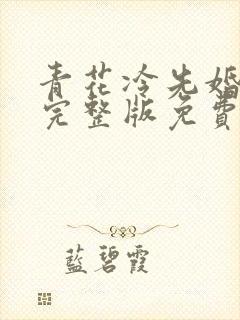 青花冷先婚
完整版免費
藍碧霞